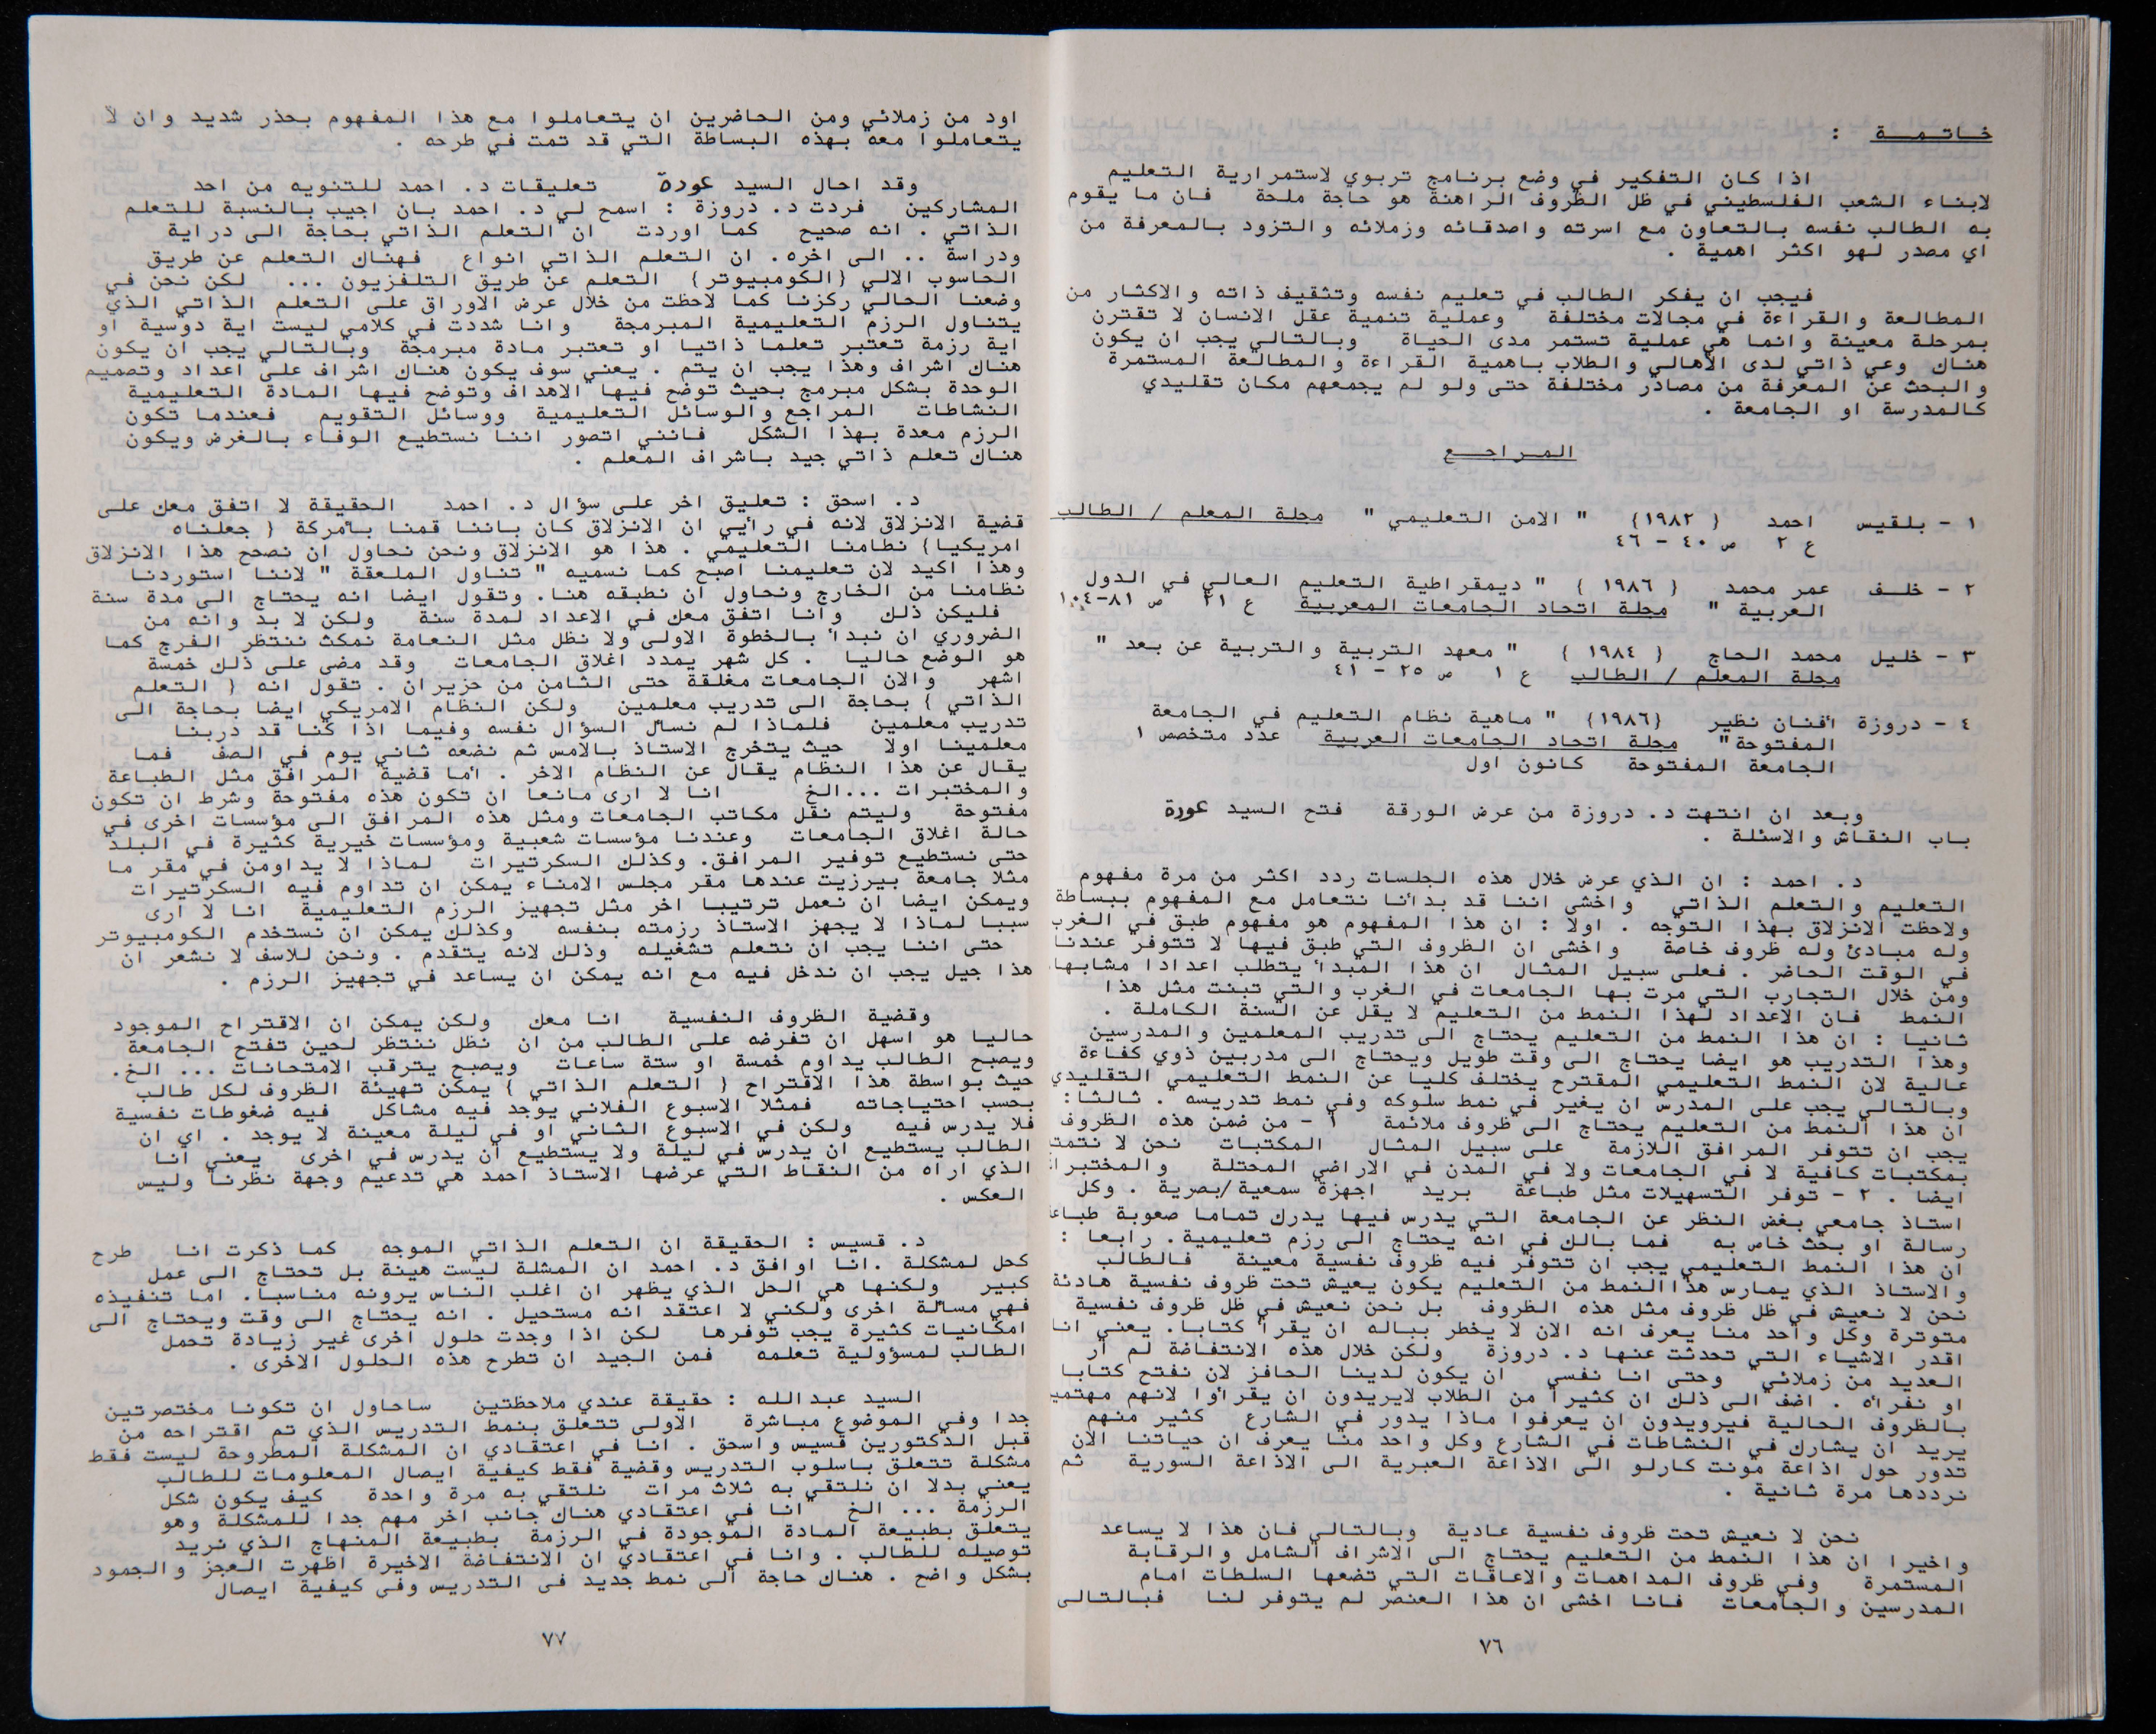 خاتمة :
اذا كان التفكير في وضع برنامج تربوي لاستمرارية التعليم
لابناء الشعب الفلسطيني في ظل الظروف الراهنة هو حاجة ملحة فان ما يقوم
به الطالب نفسه بالتعاون مع اسرته واصدقائه وزملائه والتزود بالمعرفة من
اي مصدر لهو اكثر اهمية .
فيجب ان يفكر الطالب في تعليم نفسه وتثقيف ذاته والاكثار من
المطالعة والقراءة في مجالات مختلفة وعملية تنمية عقل الانسان لا تقترن
بمرحلة معينة وانما هي عملية تستمر مدى الحياة وبالتالي يجب ان يكون
هناك وعي ذاتي لدى الاهالي والطلاب باهمية القراءة والمطالعة المستمرة
والبحث عن المعرفة من مصادر مختلفة حتى ولو لم يجمعهم مكان تقليدي
كالمدرسة او الجامعة .
المراجع
١ - بلقيس احمد ( ١٩٨٢) " الامن التعليمي " مجلة المعلم / الطالب
ع ٢ ص ٤٠ - ٤٦
٢ - خلف عمر محمد ( ١٩٨٦ ) " ديمقراطية التعليم العالي في الدول
العربية " مجلة اتحاد الجامعات المعربية ع ٢١ ص ٨١-١٠٤
٣ - خليل محمد الحاج ( ١٩٨٤ ) " معهد التربية والتربية عن بعد "
مجلة المعلم / الطالب ع ١ ص ٢٥ - ٤١
٤ - دروزة أفنان نظير (١٩٨٦) " ماهية نظام التعليم في الجامعة
المفتوحة " مجلة اتحاد الجامعات العربية عدد متخصص ١
الجامعة المفتوحة كانون اول
وبعد ان انتهت د. دروزة من عرض الورقة فتح السيد عودة
باب النقاش والاسئلة .
د. احمد : ان الذي عرض خلال هذه الجلسات ردد اكثر من مرة مفهوم
التعليم والتعلم الذاتي واخشى اننا قد بدأنا نتعامل مع المفهوم ببساطة
ولاحظت الانزلاق بهذا التوجه . اولا : ان هذا المفهوم هو مفهوم طبق في الغرب
وله مبادئ وله ظروف خاصة واخشى ان الظروف التي طبق فيها لا تتوفر عندنا
في الوقت الحاضر . فعلى سبيل المثال ان هذا المبدأ يتطلب اعدادا مشابها
ومن خلال التجارب التي مرت بها الجامعات في الغرب والتي تبنت مثل هذا
النمط فان الاعداد لهذا النمط من التعليم لا يقل عن السنة الكاملة .
ثانيا : ان هذا النمط من التعليم يحتاج الى تدريب المعلمين والمدرسين
وهذا التدريب هو ايضا يحتاج الى وقت طويل ويحتاج الى مدربين ذوي كفاءة
عالية لان النمط التعليمي المقترح يختلف كليا عن النمط التعليمي التقليدي
وبالتالي يجب على المدرس ان يغير في نمط سلوكه وفي نمط تدريسه . ثالثا:
ان هذا النمط من التعليم يحتاج الى ظروف ملائمة ١ - من ضمن هذه الظروف
يجب ان تتوفر المرافق اللازمة على سبيل المثال المكتبات نحن لا نتمت
بمكتبات كافية لا في الجامعات ولا في المدن في الاراضي المحتلة والمختبرا
ايضا . ٢ - توفر التسهيلات مثل طباعة بريد اجهزة سمعية/بصرية . وكل
استاذ جامعي بغض النظر عن الجامعة التي يدرس فيها يدرك تماما صعوبة طباعة
رسالة او بحث خاص به فما بالك في انه يحتاج الى رزم تعليمية. رابعا :
ان هذا النمط التعليمي يجب ان تتوفر فيه ظروف نفسية معينة فالطالب
والاستاذ الذي يمارس هذاالنمط من التعليم يكون يعيش تحت ظروف نفسية هادئة
نحن لا نعيش في ظل ظروف مثل هذه الظروف بل نحن نعيش في ظل ظروف نفسية
متوترة وكل واحد منا يعرف انه الان لا يخطر بباله ان يقرأ كتابا. يعني انا
اقدر الاشياء التي تحدثت عنها د. دروزة ولكن خلال هذه الانتفاضة لم أر
العديد من زملائي وحتى انا نفسي ان يكون لدينا الحافز لان نفتح كتابا
او نقرأه . اضف الى ذلك ان كثيرا من الطلاب لايريدون ان يقرأوا لانهم مهتمي
بالظروف الحالية فيرويدون ان يعرفوا ماذا يدور في الشارع كثير منهم
يريد ان يشارك في النشاطات في الشارع وكل واحد منا يعرف ان حياتنا الان
تدور حول اذاعة مونت كارلو الى الاذاعة العبرية الى الاذاعة السورية ثم
نرددها مرة ثانية .
نحن لا نعيش تحت ظروف نفسية عادية وبالتالي فان هذا لا يساعد
واخيرا ان هذا النمط من التعليم يحتاج الى الاشراف الشامل والرقابة
المستمرة وفي ظروف المداهمات والاعاقات التي تضعها السلطات امام
المدرسين والجامعات فانا اخشى ان هذا العنصر لم يتوفر لنا فبالتالى
٧٦
اود من زملائي ومن الحاضرين ان يتعاملوا مع هذا المفهوم بحذر شديد وان لا
يتعاملوا معه بهذه البساطة التي قد تمت في طرحه .
وقد احال السيد عودة تعليقات د. احمد للتنويه من احد
المشاركين فردت د. دروزة : اسمح لي د. احمد بان اجيب بالنسبة للتعلم
الذاتي . انه صحيح كما اوردت ان التعلم الذاتي بحاجة الى دراية
ودراسة .. الى اخره. ان التعلم الذاتي انواع فهناك التعلم عن طريق
الحاسوب الالي (الكومبيوتر) التعلم عن طريق التلفزيون ... لكن نحن في
وضعنا الحالي ركزنا كما لاحظت من خلال عرض الاوراق على التعلم الذاتي الذي
يتناول الرزم التعليمية المبرمجة وانا شددت في كلامي ليست اية دوسية او
اية رزمة تعتبر تعلما ذاتيا او تعتبر مادة مبرمجة وبالتالي يجب ان يكون
هناك اشراف وهذا يجب ان يتم . يعني سوف يكون هناك اشراف على اعداد وتصميم
الوحدة بشكل مبرمج بحيث توضح فيها الاهداف وتوضح فيها المادة التعليمية
النشاطات المراجع والوسائل التعليمية ووسائل التقويم فعندما تكون
الرزم معدة بهذا الشكل فانني اتصور اننا نستطيع الوفاء بالغرض ويكون
هناك تعلم ذاتي جيد باشراف المعلم .
د. اسحق : تعليق اخر على سؤال د. احمد الحقيقة لا اتفق معك على
قضية الانزلاق لانه في رأيي ان الانزلاق كان باننا قمنا بأمركة ( جعلناه
امريكيا) نظامنا التعليمي . هذا هو الانزلاق ونحن نحاول ان نصحح هذا الانزلاق
وهذا اكيد لان تعليمنا اصبح كما نسميه " تناول الملعقة " لاننا استوردنا
نظامنا من الخارج ونحاول ان نطبقه هنا. وتقول ايضا انه يحتاج الى مدة سنة
فليكن ذلك وانا اتفق معك في الاعداد لمدة سنة ولكن لا بد وانه من
الضروري ان نبدأ بالخطوة الاولى ولا نظل مثل النعامة نمكث ننتظر الفرج كما
هو الوضع حاليا . كل شهر يمدد اغلاق الجامعات وقد مضى على ذلك خمسة
اشهر والان الجامعات مغلقة حتى الثامن من حزيران . تقول انه ( التعلم
الذاتي ) بحاجة الى تدريب معلمين ولكن النظام الامريكي ايضا بحاجة الى
تدريب معلمين فلماذا لم نسأل السؤال نفسه وفيما اذا كنا قد دربنا
معلمينا اولا حيث يتخرج الاستاذ بالامس ثم نضعه ثاني يوم في الصف فما
يقال عن هذا النظام يقال عن النظام الاخر . أما قضية المرافق مثل الطباعة
والمختبرات ...الخ انا لا ارى مانعا ان تكون هذه مفتوحة وشرط ان تكون
مفتوحة وليتم نقل مكاتب الجامعات ومثل هذه المرافق الى مؤسسات اخرى في
حالة اغلاق الجامعات وعندنا مؤسسات شعبية ومؤسسات خيرية كثيرة في البلد
حتى نستطيع توفير المرافق. وكذلك السكرتيرات لماذا لا يداومن في مقر ما
مثلا جامعة بيرزيت عندها مقر مجلس الامناء يمكن ان تداوم فيه السكرتيرات
ويمكن ايضا ان نعمل ترتيبا اخر مثل تجهيز الرزم التعليمية انا لا ارى
سببا لماذا لا يجهز الاستاذ رزمته بنفسه وكذلك يمكن ان نستخدم الكومبيوتر
حتى اننا يجب ان نتعلم تشغيله وذلك لانه يتقدم . ونحن للاسف لا نشعر ان
هذا جيل يجب ان ندخل فيه مع انه يمكن ان يساعد في تجهيز الرزم .
وقضية الظروف النفسية انا معك ولكن يمكن ان الاقتراح الموجود
حاليا هو اسهل ان تفرضه على الطالب من ان نظل ننتظر لحين تفتح الجامعة
ويصبح الطالب يداوم خمسة او ستة ساعات ويصبح يترقب الامتحانات ... الخ.
حيث بواسطة هذا الاقتراح ( التعلم الذاتي ) يمكن تهيئة الظروف لكل طالب
بحسب احتياجاته فمثلا الاسبوع الفلاني يوجد فيه مشاكل فيه ضغوطات نفسية
فلا يدرس فيه ولكن في الاسبوع الثاني او في ليلة معينة لا يوجد . اي ان
الطالب يستطيع ان يدرس في ليلة ولا يستطيع ان يدرس في اخرى يعني انا
الذي اراه من النقاط التي عرضها الاستاذ احمد هي تدعيم وجهة نظرنا وليس
العكس .
د. قسيس : الحقيقة ان التعلم الذاتي الموجه كما ذكرت انا طرح
كحل لمشكلة .انا اوافق د. احمد ان المشلة ليست هينة بل تحتاج الى عمل
كبير ولكنها هي الحل الذي يظهر ان اغلب الناس يرونه مناسبا. اما تنفيذه
فهي مسألة اخرى ولكني لا اعتقد انه مستحيل . انه يحتاج الى وقت ويحتاج الى
امكانيات كثيرة يجب توفرها لكن اذا وجدت حلول اخرى غير زيادة تحمل
الطالب لمسؤولية تعلمه فمن الجيد ان تطرح هذه الحلول الاخرى .
السيد عبدالله : حقيقة عندي ملاحظتين ساحاول ان تكونا مختصرتين
جدا وفي الموضوع مباشرة الاولى تتعلق بنمط التدريس الذي تم اقتراحه من
قبل الدكتورين قسيس واسحق . انا في اعتقادي ان المشكلة المطروحة ليست فقط
مشكلة تتعلق باسلوب التدريس وقضية فقط كيفية ايصال المعلومات للطالب
يعني بدلا ان نلتقي به ثلاث مرات نلتقي به مرة واحدة كيف يكون شكل
الرزمة ... الخ انا في اعتقادي هناك جانب اخر مهم جدا للمشكلة وهو
يتعلق بطبيعة المادة الموجودة في الرزمة بطبيعة المنهاج الذي نريد
توصيله للطالب . وانا في اعتقادي ان الانتفاضة الاخيرة اظهرت العجز والجمود
بشكل واضح . هناك حاجة الى نمط جديد فى التدريس وفى كيفية ايصال
٧٧